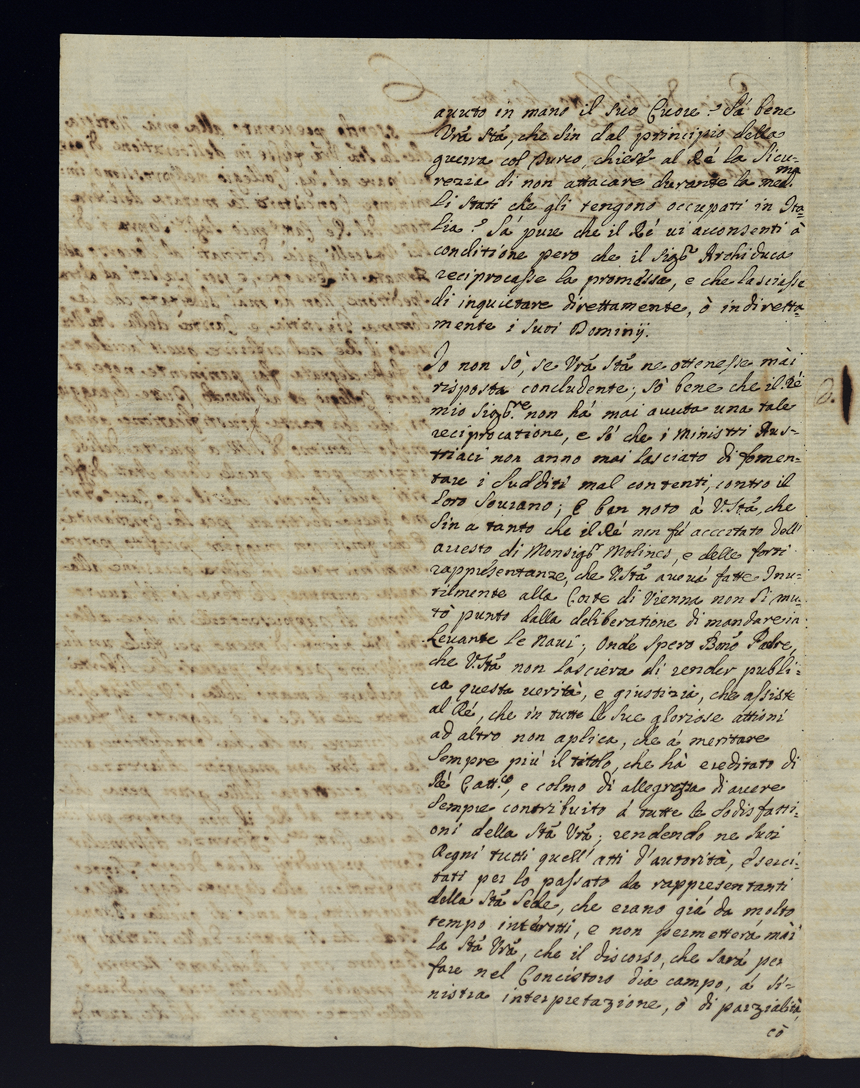 avuto in mano il suo Cuore? Sá bene
Vrã Stã, che Sin dal principio della
guerra col Turco, chiese al Ré la Sicu-
rezza di non attacare durante la mede.ma
li Stati che gli vengono occupati in Ita-
lia? Sá pure che il Ré vi acconsentì à
conditione pero che il Sig.r Archiduca
reciprocasse la promessa, e che lasciasse
di inquietare direttamente, ò indiretta-
mente i suoi Dominij.
Io non sò, se Vrã Stã ne ottenesse mài
risposta concludente; Sò bene che il Ré
mio Sig.re non há mai avuta una tale
reciprocatione, e Sò che i Ministri Aus-
triaci non anno mai lasciato di fomen-
tare i Sudditi mal contenti, contro il
loro Sovrano; È ben noto à V. Stã, che
Sin a tanto che il Ré non fú accertato dell'
arresto di Monsig.r Molines, e delle forti
rappresentanze, che V. Stã aveva fatte Inu-
tilmente alla Corte di Vienna non Si mu-
tò punto dalla deliberatione di mandare in
Levante le Navi; Onde Spero Bmõ Padre,
che V. Stã non lascierà di render publi-
ca questa verità, e giustizia, che assiste
al Ré, che in tutte le Sue gloriose attioni
ad altro non aplica, che á meritare
Sempre piú il titolo, che há ereditato di
Ré Catt.co, e colmo di allegrezza di avere
Sempre contribuito à tutte le Sodisfatti-
oni della Stã Vrã; rendendo ne Suoi
Regni tutti quell' atti d'autorità, Eserci-
tati per lo passato da rappresentanti
della Stã Sede, che erano giá da molto
tempo interotti, e non permetterá mài
la Stã Vrã, che il discorso, che Sará per
fare nel Concistoro dia campo, á Si-
nistra interpretazione, ò di parzialità,
cõ